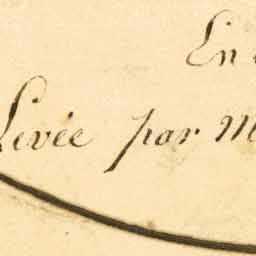 En
Levée par M